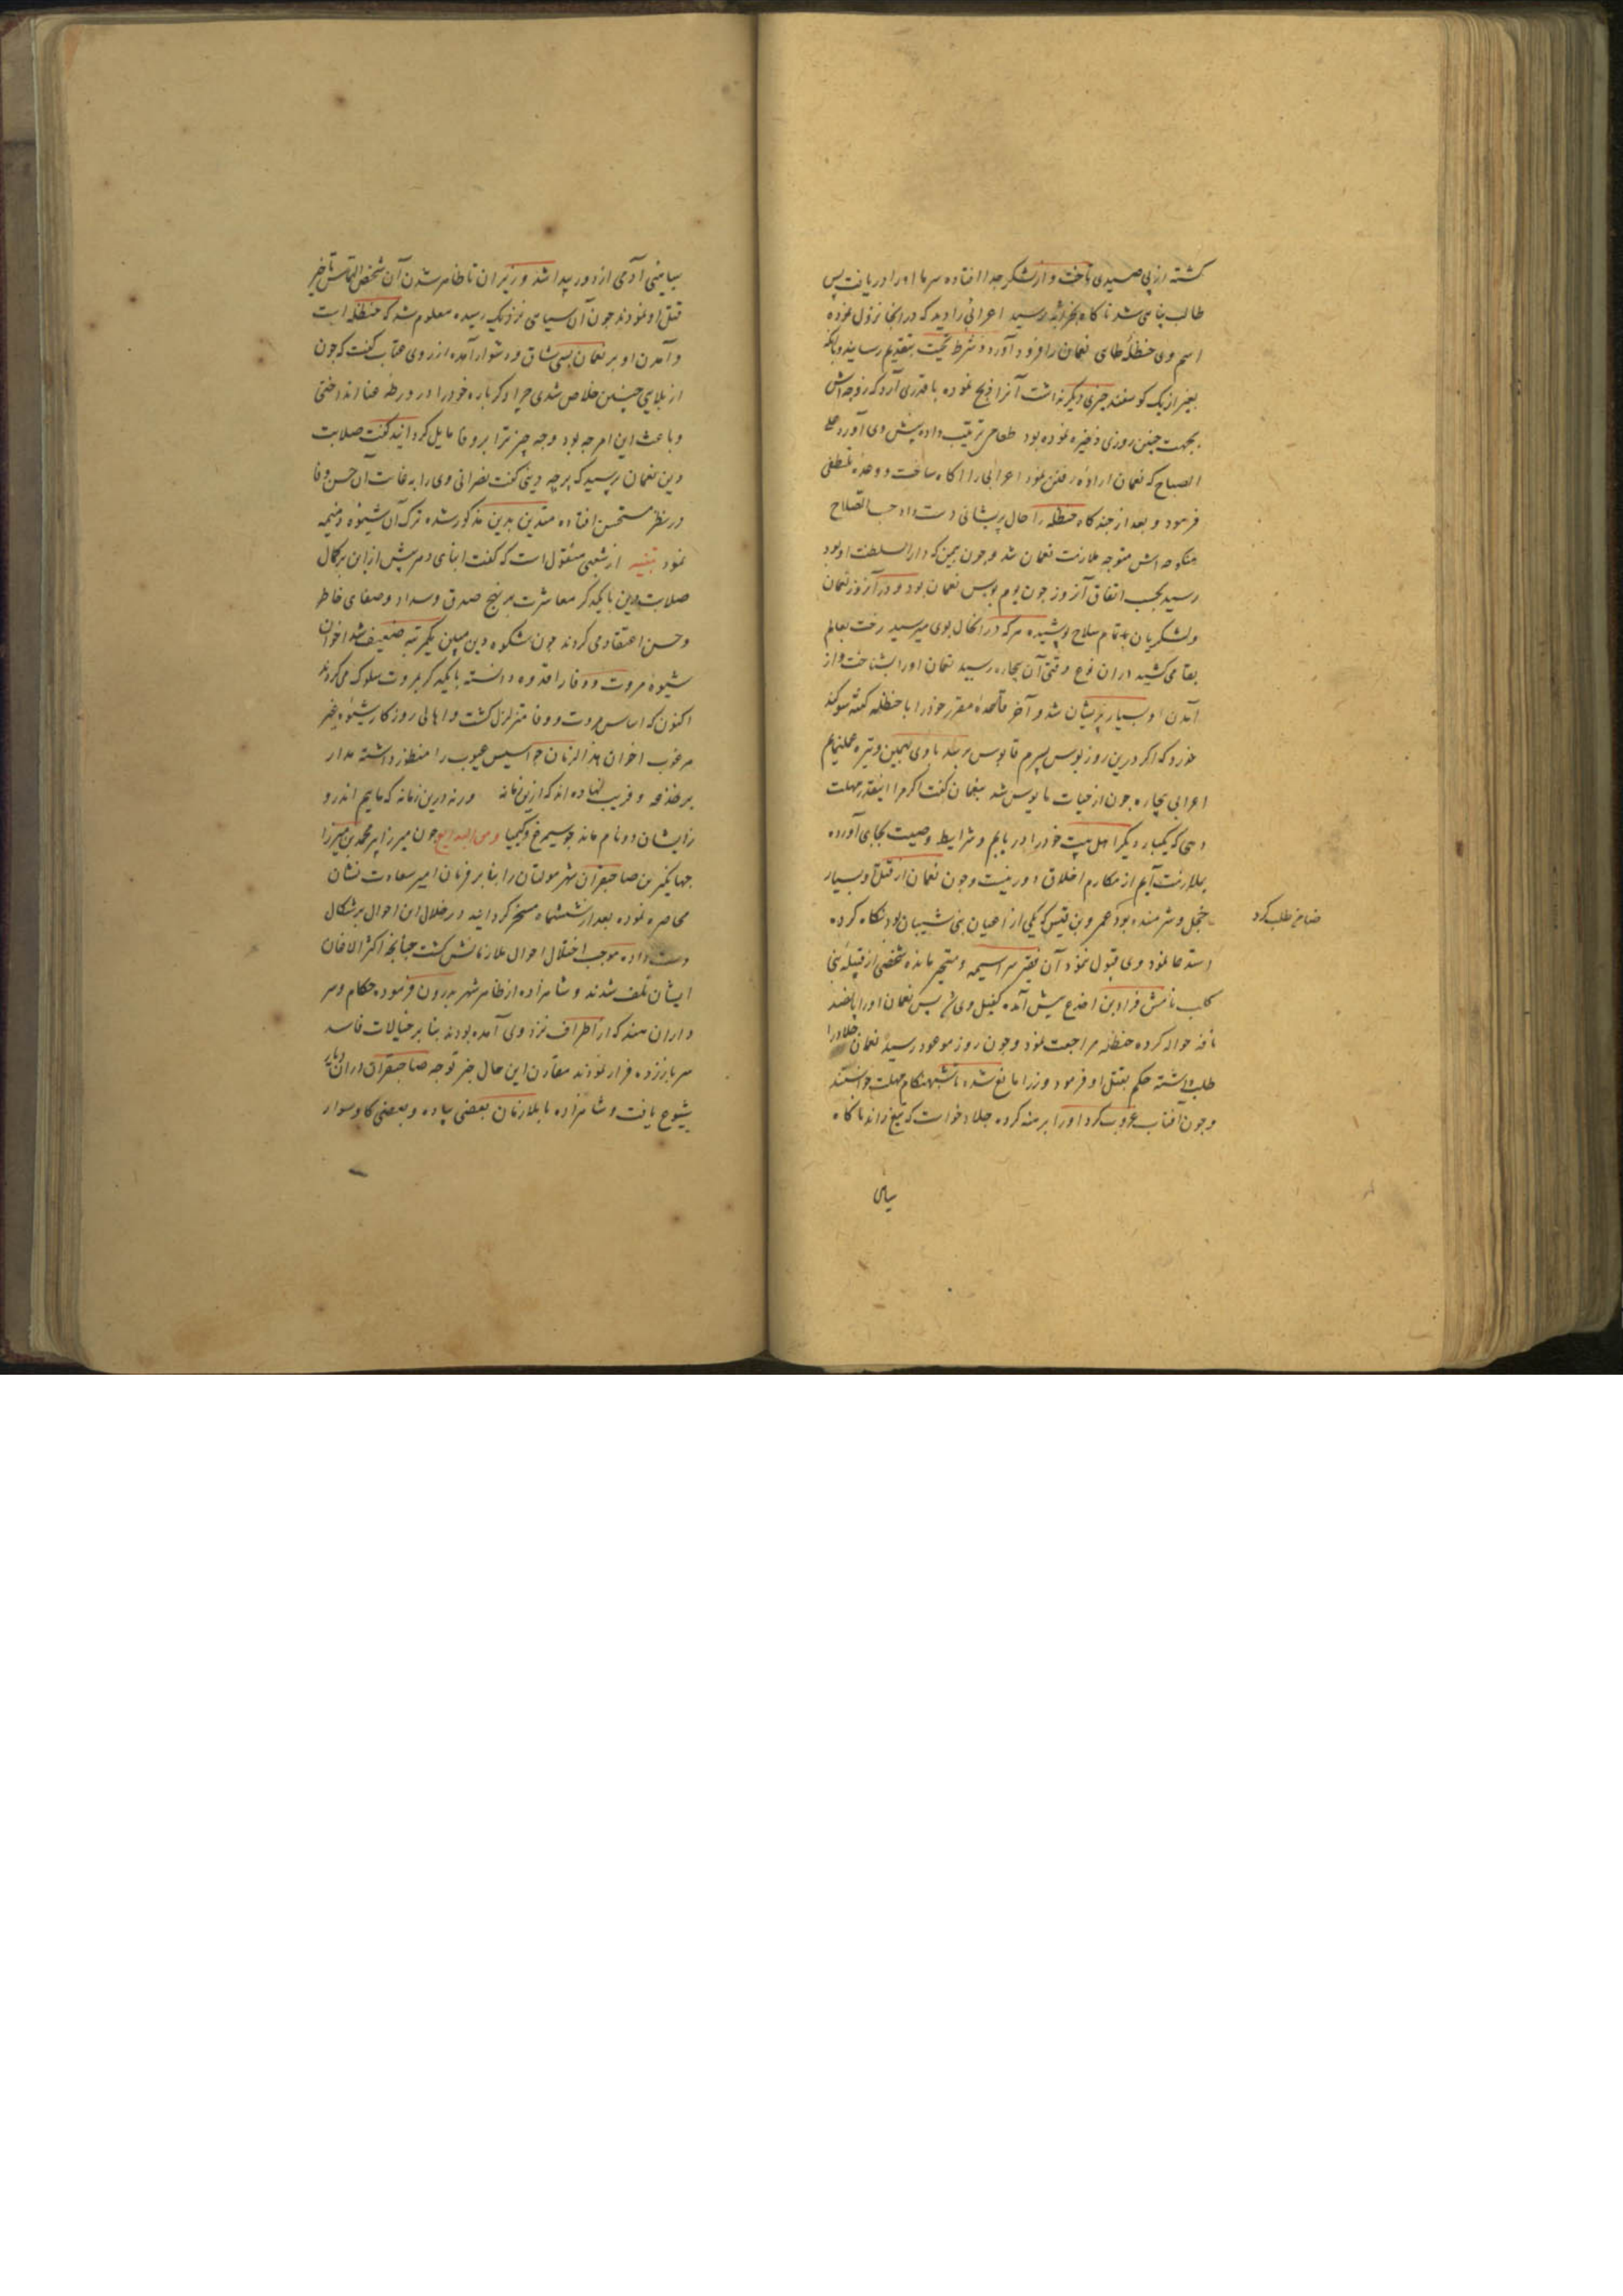 کشته از پی صیدی تاخت و از لشکر جدا افتاده سرما او را دریافت پس
طالب پناهی شد ناکاه بخرابه رسید اعرابی را دید که در انجا نزول نموده
اسم وی حنظله طای نعمان را فرود آورد و شرط تحیت بتقدیم رسانیده با آنکه
بغیر از یک کوسفند چیزی دیکر نداشت آنرا ذبح نموده با قدری آرد که زوجه‌اش
بجهت چنین روزی ذخیره نموده بود طعامی ترتیب داده پیش وی آورد علی
الصباح که نعمان اراده رفتن نمود اعرابی را اکاه ساخت و وعده تلطفی
فرمود و بعد از چند کاه حنظله را حال پریشانی دست داد حسب الصلاح
منکوحه‌اش متوجه ملازمت نعمان شد و چون بیمن که دار السلطنت او بود
رسید بحسب اتفاق آنروز چون یوم بوس نعمان بود و در آنروز نعمان
و لشکریان بتمام سلاح پوشیده هر که در انحال بوی میرسید رخت بعالم
بقا می کشید در ان نوع وقتی آن بیچاره رسید نعمان او را بشناخت و از
آمدن او بسیار پریشان شد و آخر قاعده مقرر خود را با حنظله کفته سوکند
خورد که اکر درین روز بوس پسرم قابوس برسد با وی بهمین وتیره عمل نمایم
اعرابی بیچاره چون از حیات مایوس شد بنعمان کفت اکر مرا اینقدر مهلت
دهی که یکبار دیکر اهل بیت خود را دریابم و شرایط وصیت بجای آورده
بملازمت آیم از مکارم اخلاق دور نیست و چون نعمان از قتل او بسیار
خجل و شرمنده بود عمرو بن قیس که یکی از اعیان بنی شیبان بود نکاه کرده
ضامن طلب کرد
استدعا نمود وی قبول ننمود آن فقیر سراسیمه و متحیر مانده شخصی از قبیله بنی
کلب نامش قراد بن اجدع پیش آمده کفیل وی شد پس نعمان او را پانصد
ناقه حواله کرده حنظله مراجعت نمود و چون روز موعود رسید نعمان جلاد را
طلب داشته حکم بقتل او فرمود وزرا مانع شده تا شبهنکام مهلت خواستند
و چون آفتاب غروب کرد او را برهنه کرده جلاد خواست که تیغ راند ناکاه
سیاهی
سیاهی آدمی از دور پیدا شد وزیران تا ظاهر شدن آن شخص التماس تاخیر
قتل او نمودند چون آن سیاهی نزدیک رسیده معلوم شد که حنظله است
و آمدن او بر نعمان بسی شاق و دشوار آمده از روی عتاب کفت که چون
از بلایی چنین خلاص شدی چرا دکرباره خود را در ورطه عنا انداختی
و باعث این امر چه بود و چه چیز ترا بر وفا مایل کردانید کفت صلابت
دین نعمان پرسید که بر چه دینی کفت نصرانی وی را بغایت آن حسن وفا
در نظر مستحسن افتاده متدین بدین مذکور شده ترک آن شیوه ذمیمه
نمود تنبیه از شعبی منقول است که کفت ابنای دهر پیش از این بر کمال
صلابت دین با یکدکر معاشرت بر نهج صدق و سداد و صفای خاطر
و حسن اعتقاد می کردند چون شکوه دین مبین یکمرتبه ضعیف شد اخوان
شیوه مروت و وفا را قدوه دانسته با یکدکر بمروت سلوک می کردند
اکنون که اساس مروت و وفا متزلزل کشت و اهالی روزکار شیوه غیر
مرغوب اخوان هذا الزمان جواسیس عیوب را منظور داشته مدار
بر خدعه و فریب نهاده اند که ازین زمانه ورنه درین زمانه که ماییم اندرو
زایشان دو نام ماند چو سیمرغ و کیمیا ومن البدایع چون میرزا پیر محمد بن میرزا
جهانکیر بن صاحبقران شهر مولتان را بنابر فرمان امیر سعادت نشان
محاصره نموده بعد از ششماه مسخر کردانید در خلال این احوال برشکال
دست داده موجب اختلال احوال ملازمانش کشت چنانچه اکثر الاغان
ایشان تلف شدند و شاهزاده از ظاهر شهر بدرون فرموده حکام و سر
داران هند که از اطراف نزد وی آمده بودند بنابر خیالات فاسد
سر باز زده فرار نمودند مقارن این حال خبر توجه صاحبقران دران دیار
شیوع یافت و شاهزاده با ملازمان بعضی پیاده و بعضی کاو سوار